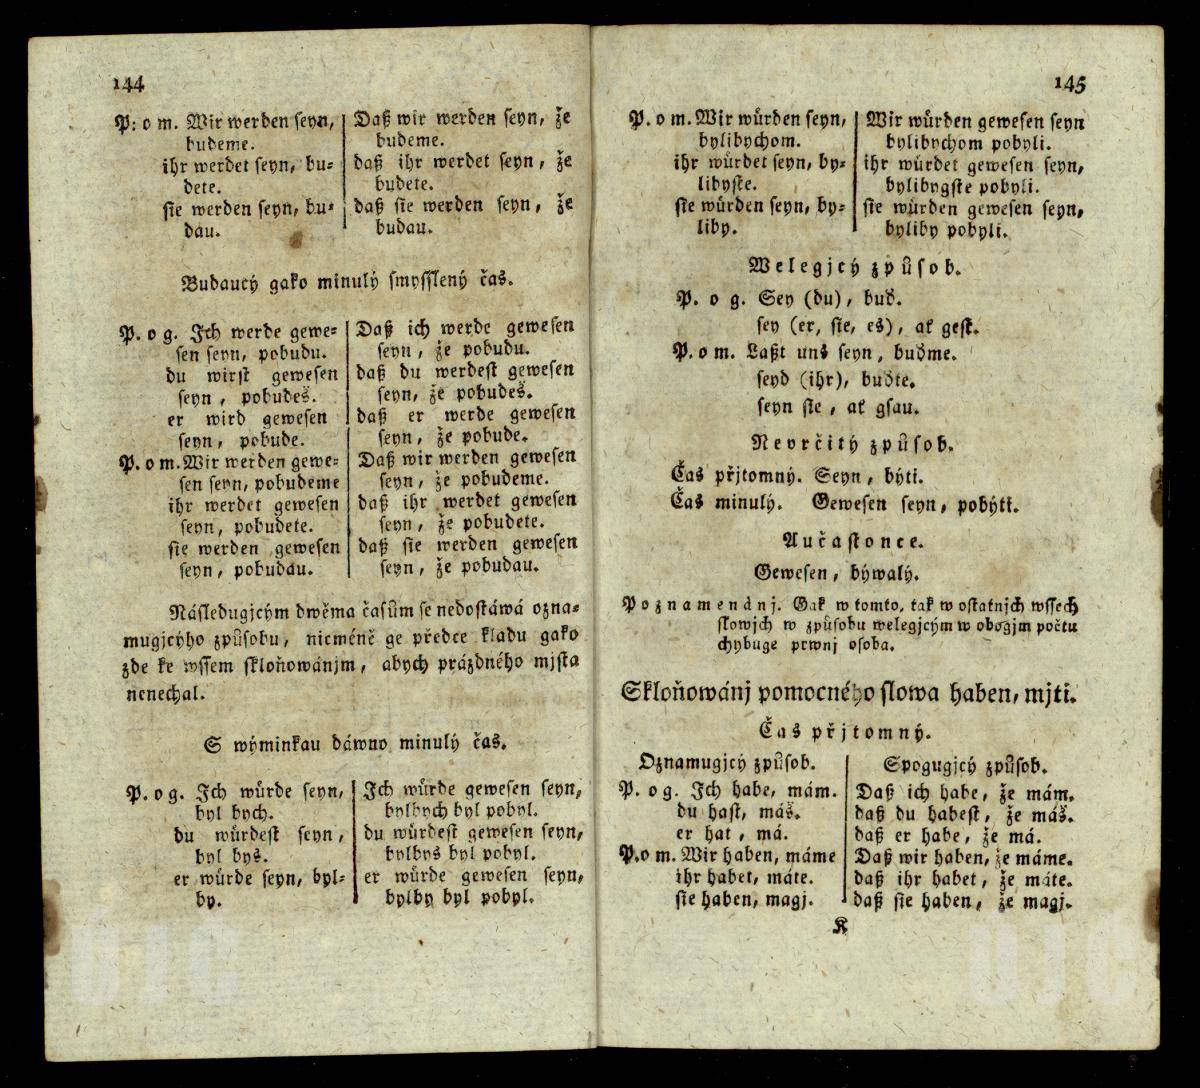 144
P. o m. Wir werden seyn,
budeme.
ihr werdet seyn, bu-
dete.
sie werden seyn, bu-
dau.
Daß wir werden seyn, že
budeme.
daß ihr werdet seyn, že
budete.
daß sie werden seyn, že
budau.
Budaucý gako minulý smysslený čas.
P. o g. Ich werde gewe-
sen seyn, pobudu.
du wirst gewesen
seyn, pobudeš.
er wird gewesen
seyn, pobude.
P. o m. Wir werden gewe-
sen seyn, pobudeme
ihr werdet gewesen
seyn, pobudete.
sie werden gewesen
seyn, pobudau.
Daß ich werde gewesen
seyn, že pobudu.
daß du werdest gewesen
seyn, že pobudeš.
daß er werde gewesen
seyn, že pobude.
Daß wir werden gewesen
seyn, že pobudeme.
daß ihr werdet gewesen
seyn, že pobudete.
daß sie werden gewesen
seyn, že pobudau.
Následugjcým dwěma časům se nedostáwá ozna-
mugjcýho způsobu, nicméně ge předce kladu gako
zde ke wssem skloňowánjm, abych prázdného mjsta
nenechal.
S wýminkau dáwno minulý čas.
P. o g. Ich würde seyn,
byl bych.
du würdest seyn,
byl byš.
er würde seyn, byl-
by.
Ich würde gewesen seyn,
bylbych byl pobyl.
du würdest gewesen seyn,
bylbyš byl pobyl.
er würde gewesen seyn,
bylby byl pobyl.
145
P. o m. Wir würden seyn,
bylibychom.
ihr würdet seyn, by-
libyste.
sie würden seyn, by-
liby.
Wir würden gewesen seyn
bylibychom pobyli.
ihr würdet gewesen seyn,
bylibygste pobyli.
sie würden gewesen seyn,
byliby pobyli.
Welegjcý způsob.
P. o g. Sey (du), buď.
sey (er, sie, es), ať gest.
P. o m. Laßt uns seyn, buďme.
seyd (ihr), buďte.
seyn sie, ať gsau.
Nevrčitý způsob.
Čas přjtomný. Seyn, býti.
Čas minulý. Gewesen seyn, pobýti.
Aučastonce.
Gewesen, býwalý.
Poznamenánj. Gak w tomto, tak w ostatnjch wssech
slowjch w způsobu welegjcým w obogjm počtu
chybuge prwnj osoba.
Skloňowánj pomocného slowa haben, mjti.
Čas přjtomný.
Oznamugjcý způsob.
P. o g. Ich habe, mám.
du hast, máš.
er hat, má.
P. o m. Wir haben, máme
ihr habet, máte.
sie haben, magj.
Spogugjcý způsob.
Daß ich habe, že mám.
daß du habest, že máš.
daß er habe, že má.
Daß wir haben, že máme.
daß ihr habet, že máte.
daß sie haben, že magj.
K
ÚJČ
ÚJČ